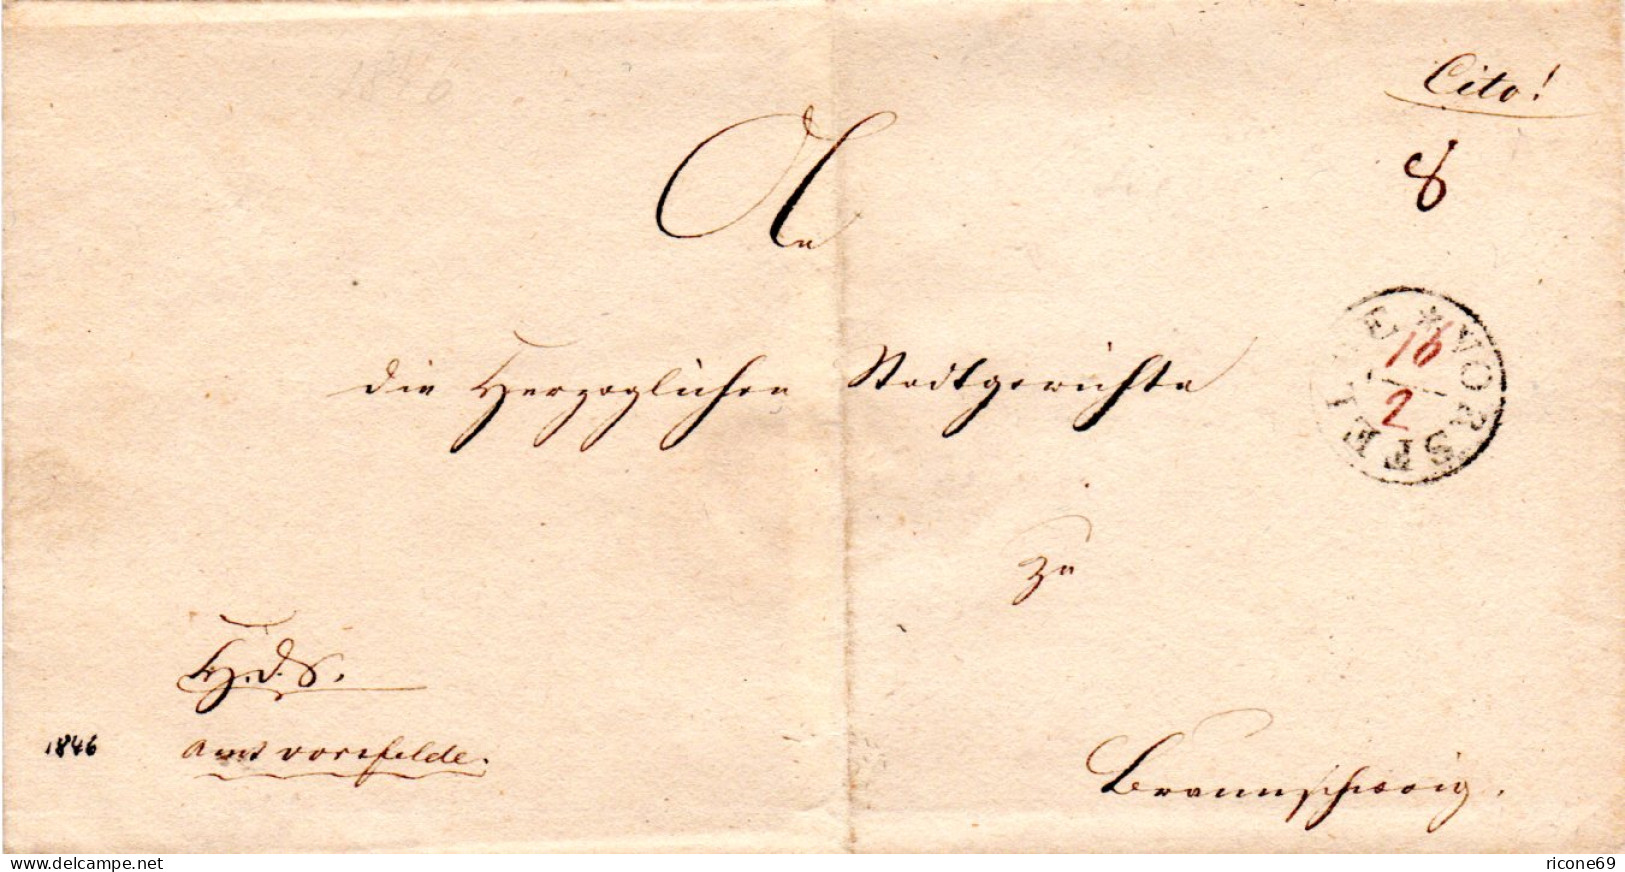 1846
Cito!
8
An
die Herzoglichen Stadtgerichte
* VORSFELDE
16
2
zu
H. d. S.
1846
Amt Vorsfelde.
Braunschweig.
ricone69
www.delcampe.net